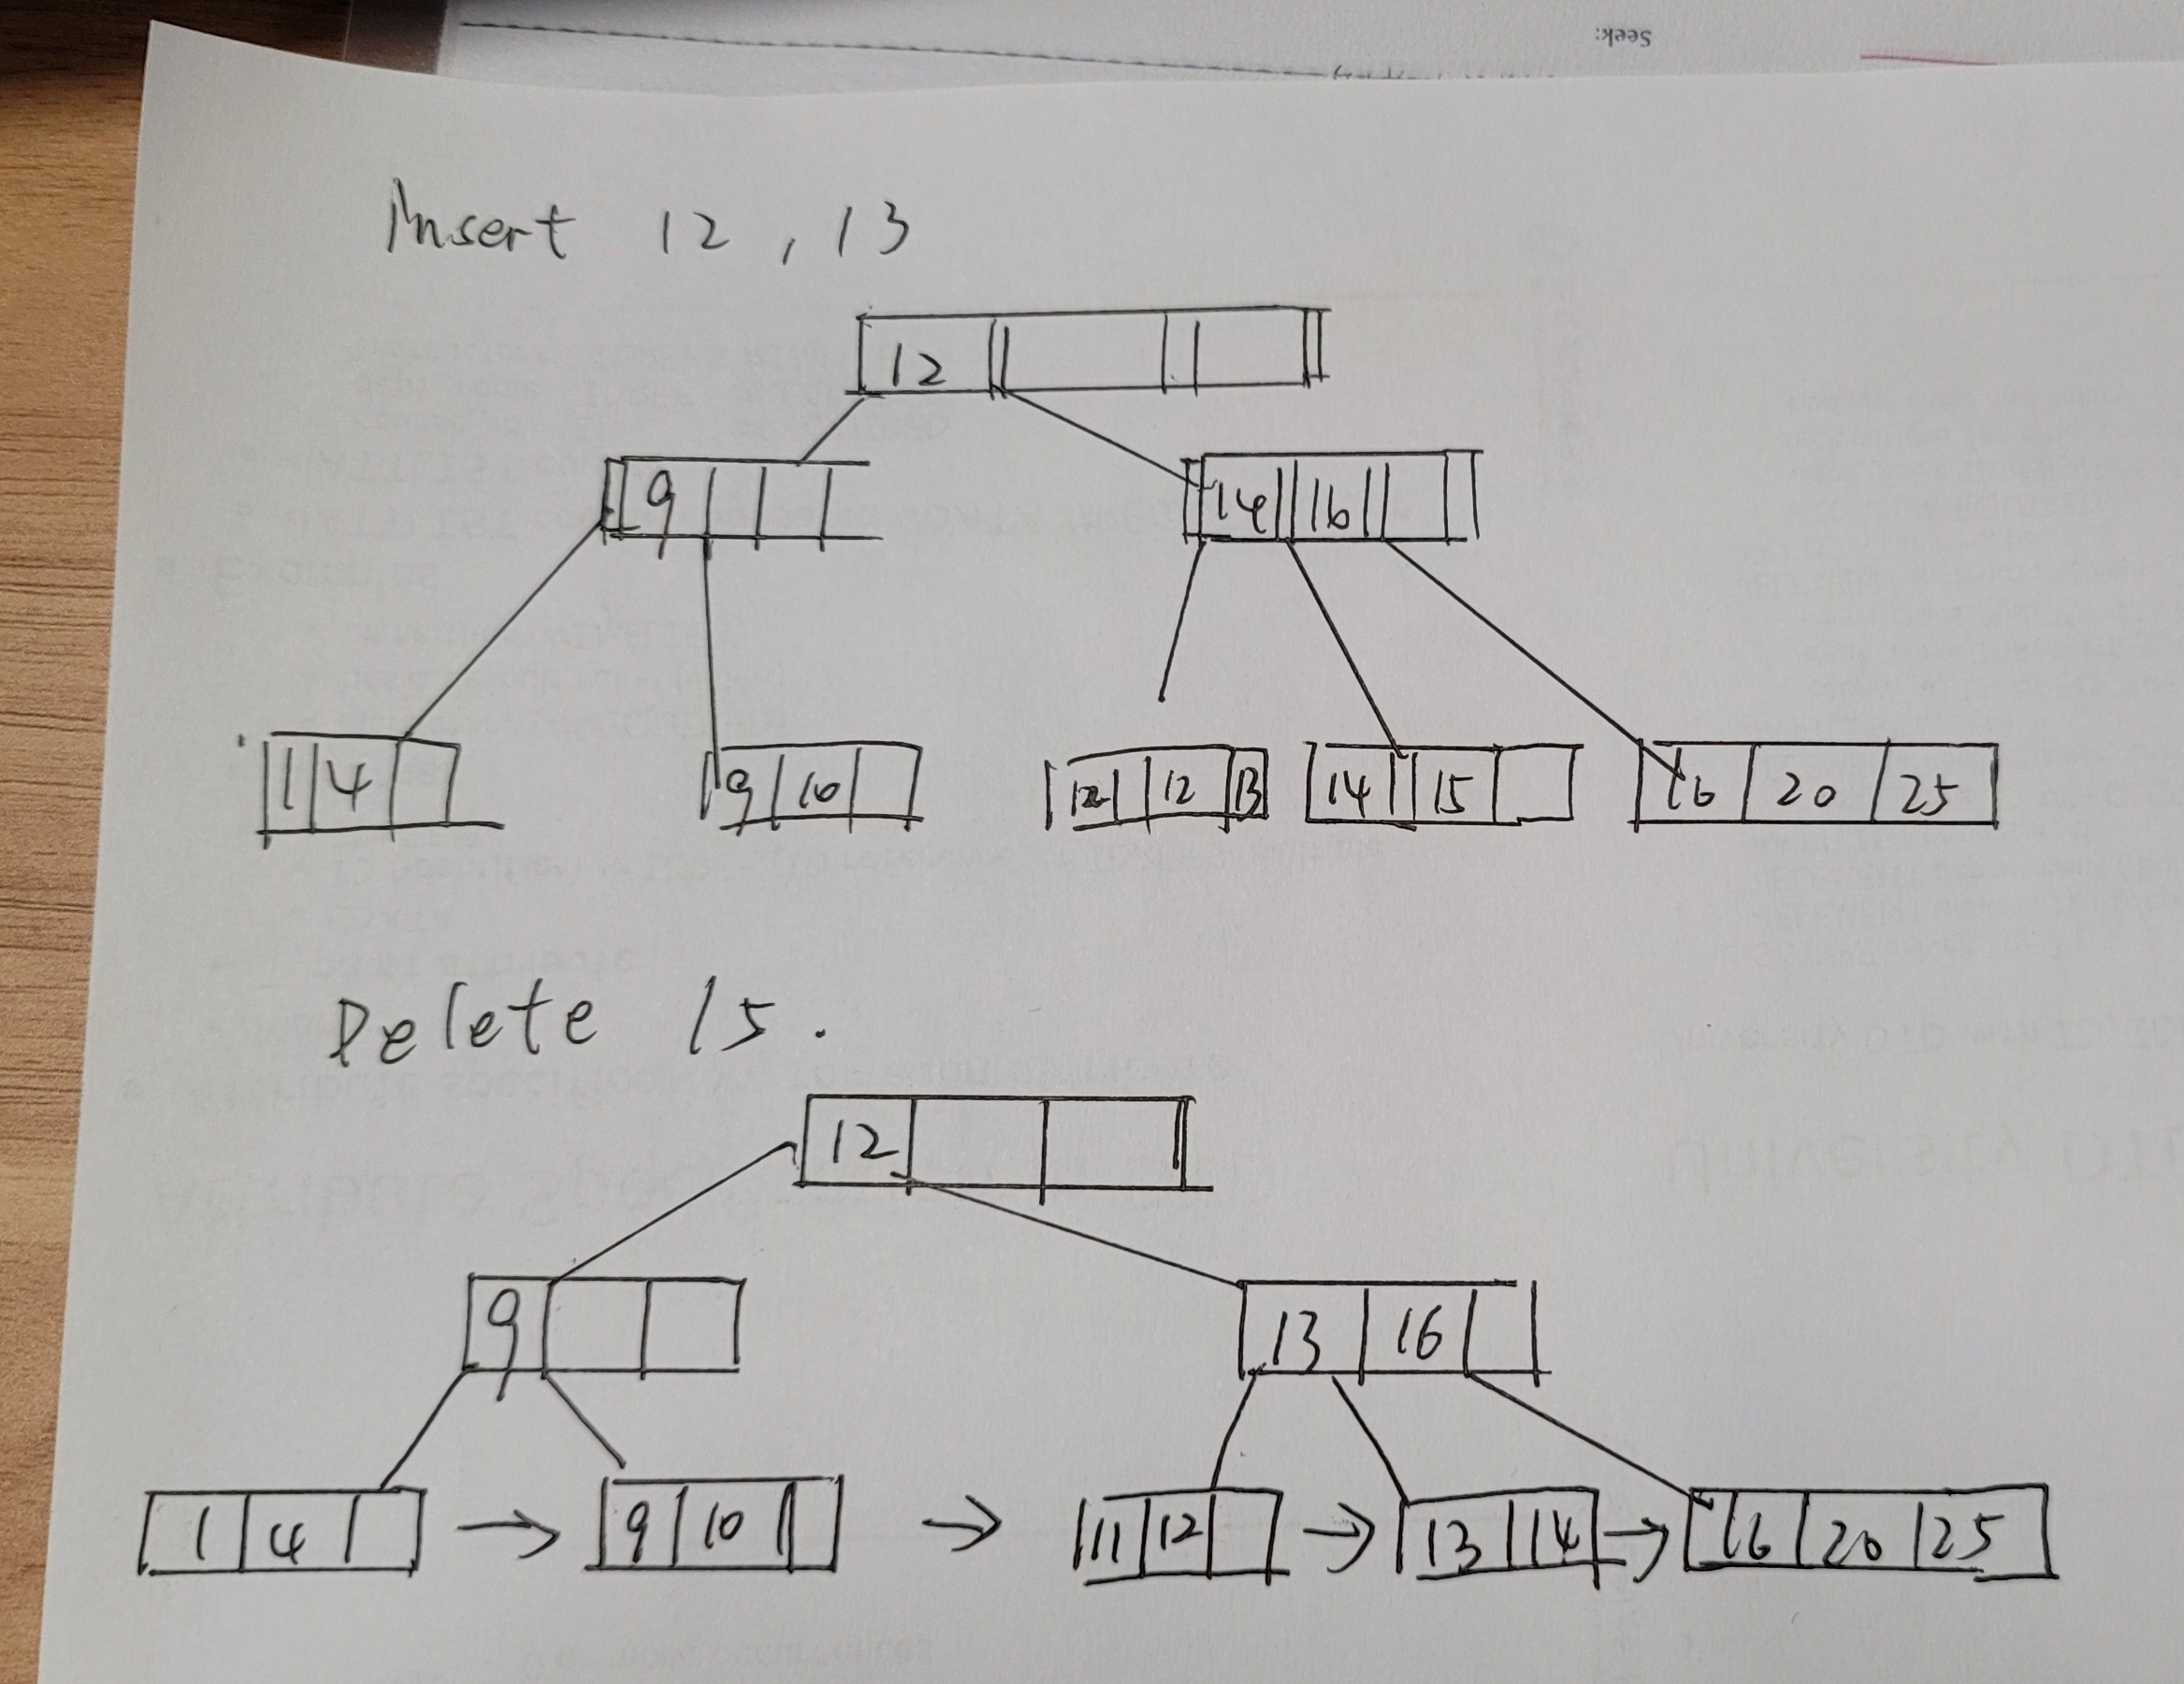 Seek:
Insert 12, 13
12
9 14 16
1 4 9 10 12 13 14 15 16 20 25
Delete 15.
12
9 13 16
1 4 → 9 10 → 11 12 → 13 14 → 16 20 25